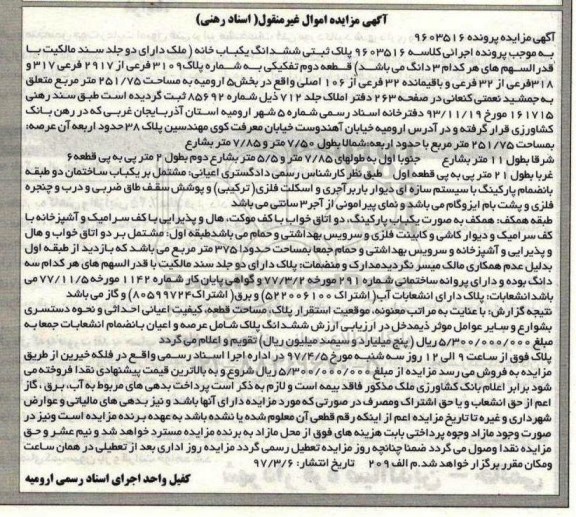 آگهی مزایده اموال غیرمنقول( اسناد رهنی)
آگهی مزایده پرونده ۹۶۰۳۵۱۶
به موجب پرونده اجرائی کلاسه ۹۶۰۳۵۱۶ پلاک ثبتی ششدانگ یکباب خانه ( ملک دارای دو جلد سند مالکیت با
قدرالسهم های هر کدام ۳دانگ می باشد) قطعه دوم تفکیکی به شماره پلاک ۳۱۰۹ فرعی از ۲۹۱۷ فرعی ۳۱۷ و
۳۱۸فرعی از ۳۲ فرعی و باقیمانده ۳۲ فرعی از ۱۰۶ اصلی واقع در بخش۵ ارومیه به مساحت ۲۵۱/۷۵ متر مربع متعلق
به جمشید نعمتی کنعانی در صفحه ۲۶۳ دفتر املاک جلد ۷۱۲ ذیل شماره ۸۵۶۹۲ ثبت گردیده است طبق سند رهنی
۱۶۱۷۱۵ مورخ ۹۳/۱۱/۱۹ دفترخانه اسناد رسمی شماره ۵ شهر ارومیه استان آذربایجان غربی که در رهن بانک
کشاورزی قرار گرفته و در آدرس ارومیه خیابان آهندوست خیابان معرفت کوی مهندسین پلاک ۳۸ حدود اربعه آن عرصه:
بمساحت ۲۵۱/۷۵ متر مربع با حدود اربعه:شمالا بطول ۷/۵۰ متر و ۷/۸۵ متر بشارع
شرقا بطول ۱۱ متر بشارع جنوبا اول به طولهای ۷/۸۵ متر و ۵/۵ متر بشارع دوم بطول ۲ متر پی به پی قطعه۶
غربا بطول ۲۱ متر پی به پی قطعه اول طبق نظر کارشناس رسمی دادگستری اعیانی: مشتمل بر یکباب ساختمان دو طبقه
بانضمام پارکینگ با سیستم سازه ای دیوار باربر آجری و اسکلت فلزی( ترکیبی) و پوشش سقف طاق ضربی و درب و پنجره
فلزی و پشت بام ایزوگام می باشد و نمای پیرامونی از آجر۳ سانتی می باشد
طبقه همکف: همکف به صورت یکباب پارکینگ، دو اتاق خواب با کف موکت، هال و پذیرایی با کف سرامیک و آشپزخانه با
کف سرامیک و دیوار کاشی و کابینت فلزی و سرویس بهداشتی و حمام می باشدطبقه اول: مشتمل بر دو اتاق خواب و هال
و پذیرایی و آشپزخانه و سرویس بهداشتی و حمام جمعا بمساحت حدودا ۳۷۵ متر مربع می باشد که بازدید از طبقه اول
بدلیل عدم همکاری مالک میسر نگردیدمدارک و منضمات: پلاک دارای دو جلد سند مالکیت با قدرالسهم های هر کدام سه
دانگ بوده و دارای پروانه ساختمانی شماره ۲۹۱ مورخه ۷۷/۳/۲ و گواهی پایان کار شماره ۱۱۴۲ مورخه ۷۷/۱۱/۵ می
باشدانشعابات: پلاک دارای انشعابات آب( اشتراک ۵۲۲۰۰۶۱۰۰) و برق( اشتراک۸۰۵۹۹۷۲۴) و گاز می باشد
نتیجه گزارش: با عنایت به مراتب معنونه، موقعیت استقرار پلاک، مساحت قطعه، کیفیت اعیانی احداثی و نحوه دسترسی
بشوارع و سایر عوامل موثر ذیمدخل در ارزیابی ارزش ششدانگ پلاک شامل عرصه و اعیان بانضمام انشعابات جمعا به
مبلغ ۵/۳۰۰/۰۰۰/۰۰۰ ریال ( پنج میلیارد و سیصد میلیون ریال) تقویم و اعلام می گردد
پلاک فوق از ساعت ۹ الی ۱۲ روز سه شنبه مورخ ۹۷/۴/۵ در اداره اجرا اسناد رسمی واقع در فلکه خیرین از طریق
مزایده به فروش می رسد مزایده از مبلغ ۵/۳۰۰/۰۰۰/۰۰۰ ریال شروع و به بالاترین قیمت پیشنهادی نقدا فروخته می
شود برابر اعلام بانک کشاورزی ملک مذکور فاقد بیمه است و لازم به ذکر است پرداخت بدهی های مربوط به آب، برق ، گاز
اعم از حق انشعاب و یا حق اشتراک ومصرف در صورتی که مورد مزایده دارای آنها باشد و نیز بدهی های مالیاتی و عوارض
شهرداری و غیره تا تاریخ مزایده اعم از اینکه رقم قطعی آن معلوم شده یا نشده باشد به عهده برنده مزایده است ونیز در
صورت وجود مازاد وجوه پرداختی بابت هزینه های فوق از محل مازاد به برنده مزایده مسترد خواهد شد و نیم عشر و حق
مزایده نقدا وصول می گردد ضمنا چنانچه روز مزایده تعطیل رسمی گردد مزایده روز اداری بعد از تعطیلی در همان ساعت
ومکان مقرر برگزار خواهد شد.م الف ۲۰۹ تاریخ انتشار: ۹۷/۳/۶
کفیل واحد اجرای اسناد رسمی ارومیه